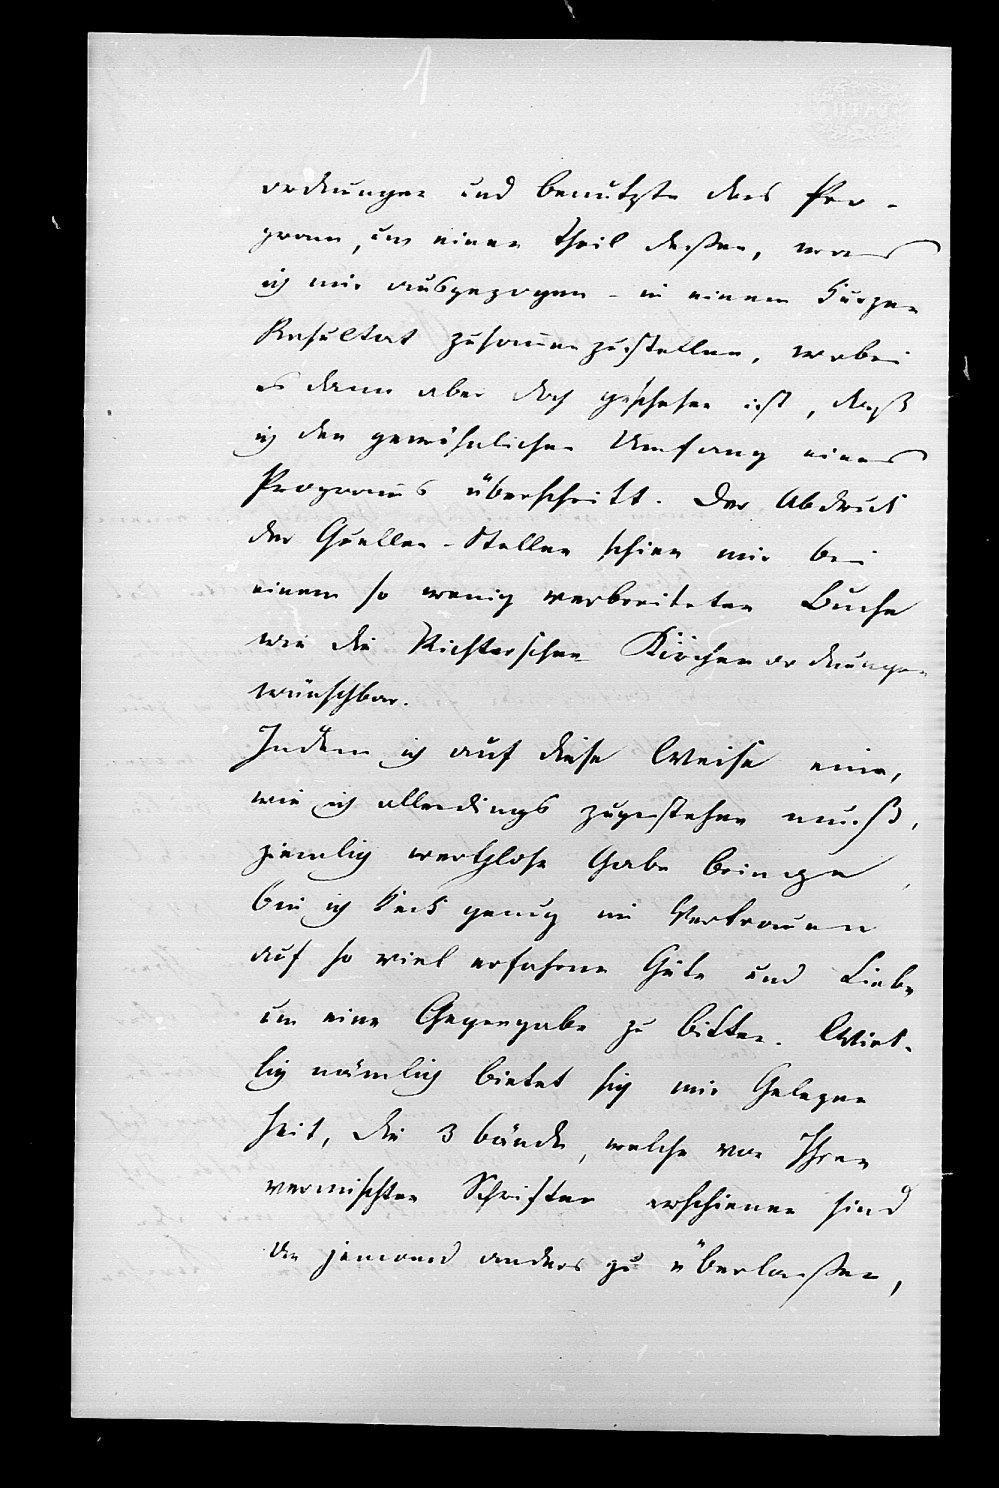 ordnungen und benutzte das Pro-
gram, um einen Theil dessen, was
ich mir ausgezogen - in einem kurzen
Resultat zusammenzustellen, wobei
es dann aber doch geschehen ist, daß
ich den gewöhnlichen Umfang eines
Programms überschritt. Der Abdruck
der Quellen-Stellen schien mir bei
einem so wenig verbreiteten Buche
wie die Richterschen Kirchenordnungen
wünschbar.
Indem ich auf diese Weise eine,
wie ich allerdings zugestehen muß,
ziemlich werthlose Gabe bringe,
bin ich keck genug im Vertrauen
auf so viel erfahrene Güte und Liebe
um eine Gegengabe zu bitten. Wirk-
lich nämlich bietet sich mir Gelegen
heit, die 3 Bände, welche von Ihren
vermischten Schriften erschienen sind
an jemand anders zu überlassen,